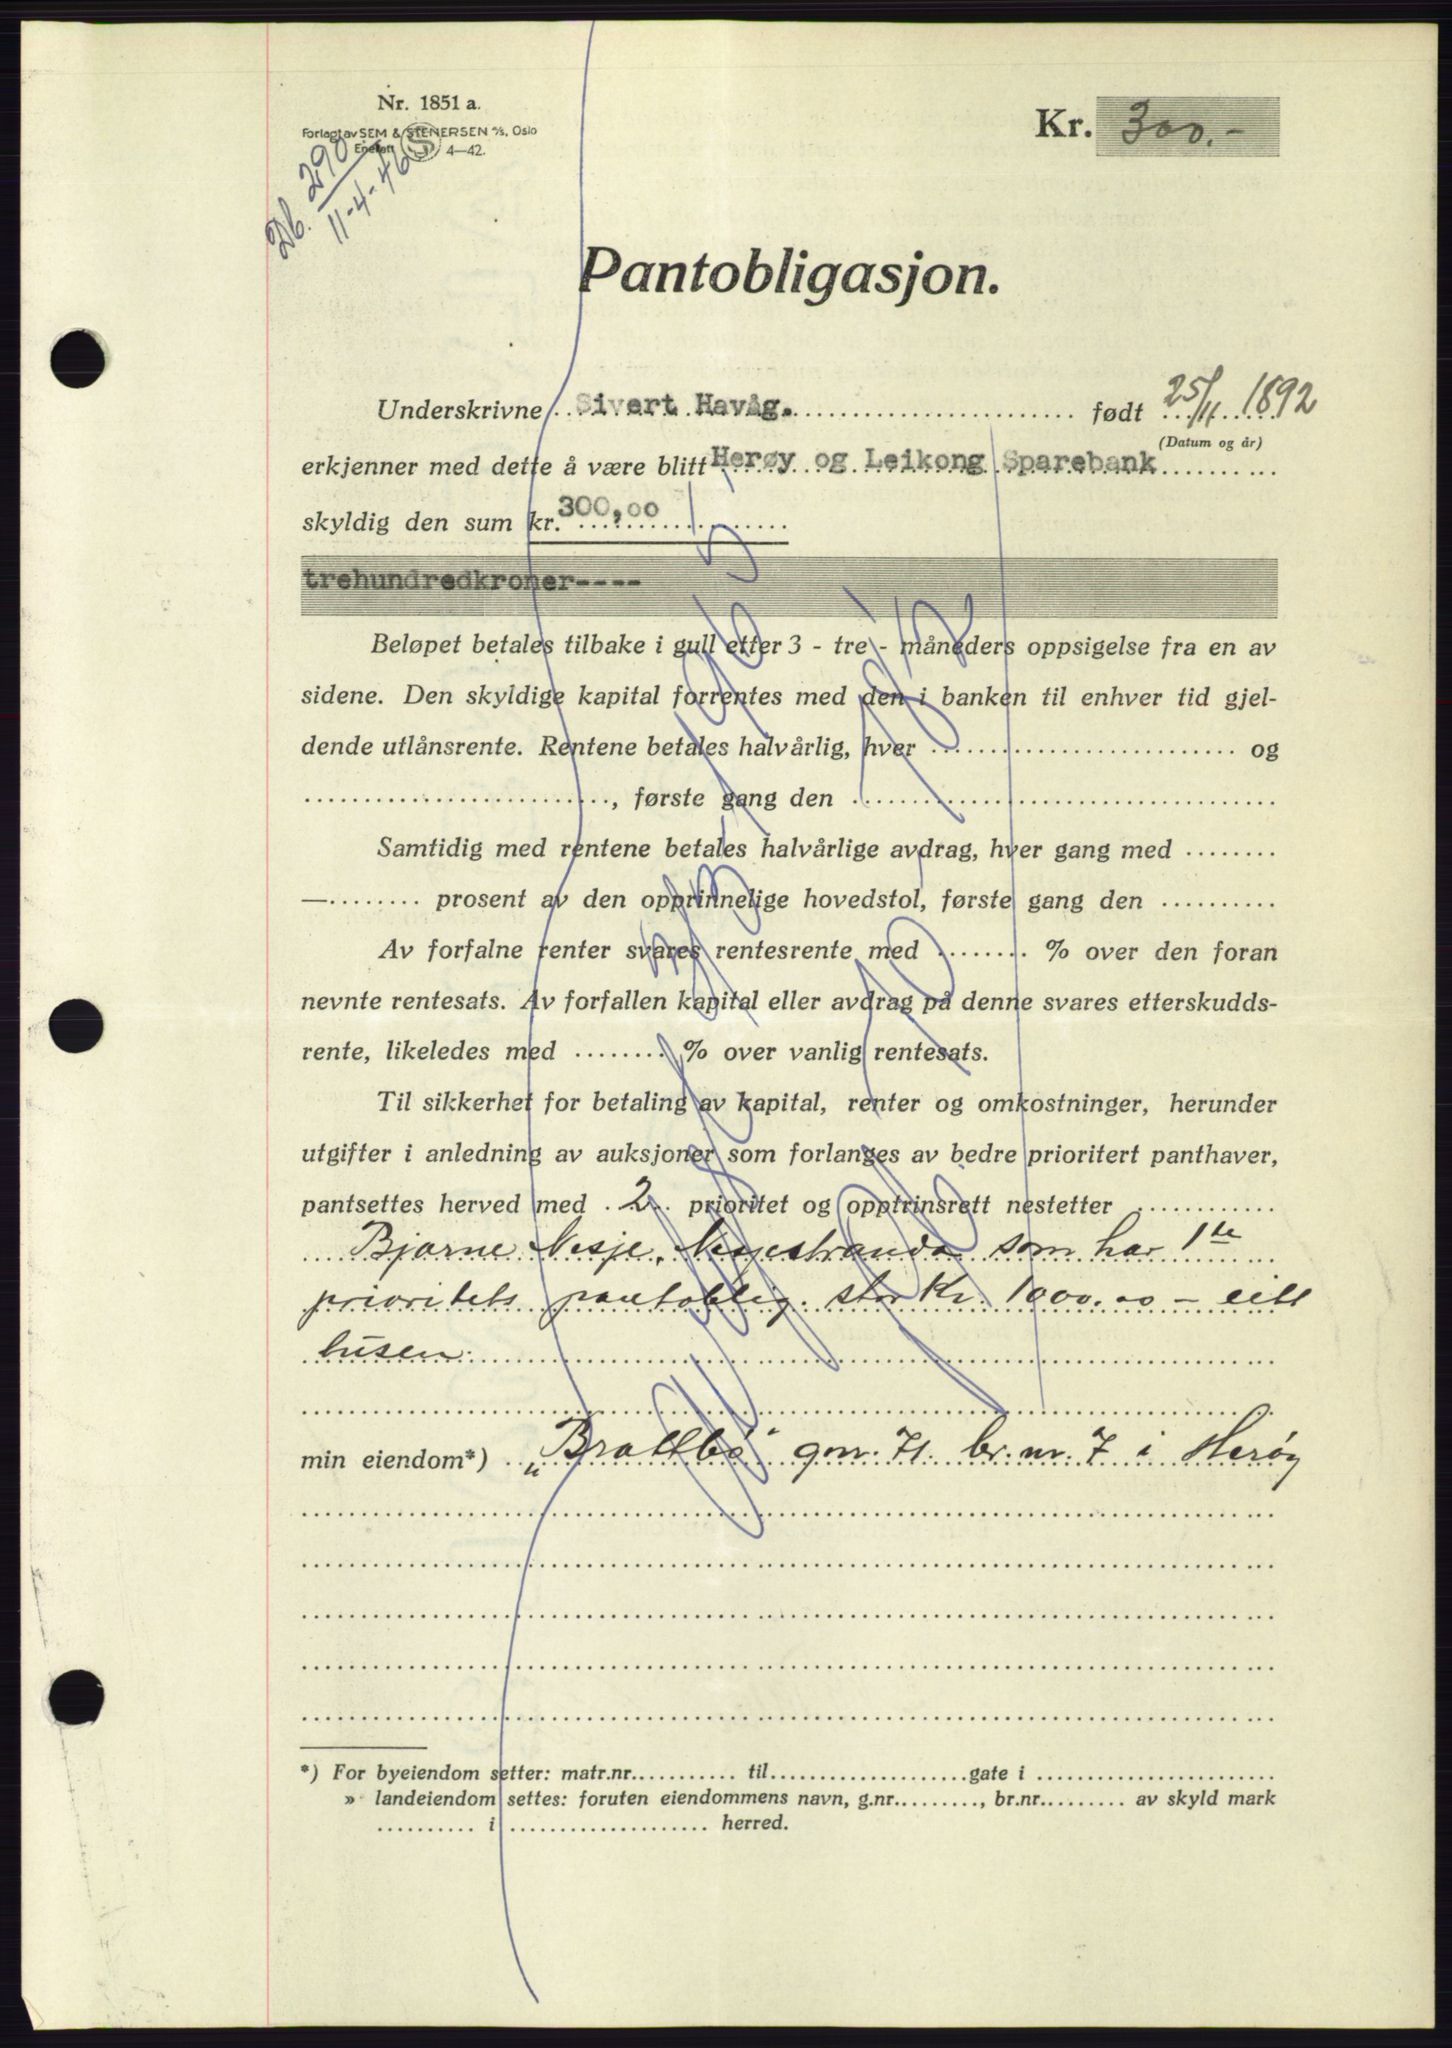 Nr. 1851 a.
Forlagt av SEM & STENERSEN A/S, Oslo
Enerett S 4—42.
Db. 290
11-4-46
Kr. 300.-
Pantobligasjon.
Underskrivne Sivert Havåg. født 25/11 1892
(Datum og år)
erkjenner med dette å være blitt Herøy og Leikong Sparebank
skyldig den sum kr. 300,00
trehundredkroner----
Beløpet betales tilbake i gull etter 3 - tre - måneders oppsigelse fra en av
sidene. Den skyldige kapital forrentes med den i banken til enhver tid gjel-
dende utlånsrente. Rentene betales halvårlig, hver .......... og
.........., første gang den ..........
Samtidig med rentene betales halvårlige avdrag, hver gang med ........
—........ prosent av den opprinnelige hovedstol, første gang den ..........
Av forfalne renter svares rentesrente med ........ % over den foran
nevnte rentesats. Av forfallen kapital eller avdrag på denne svares etterskudds-
rente, likeledes med ........ % over vanlig rentesats.
Til sikkerhet for betaling av kapital, renter og omkostninger, herunder
utgifter i anledning av auksjoner som forlanges av bedre prioritert panthaver,
pantsettes herved med 2. prioritet og opptrinsrett nestetter ..........
Bjarne Nesje, Nesjestranda som har 1ste
prioritets pantoblig. stor Kr. 1000.00 – eitt
tusen.
min eiendom*) „Brattbø" gnr. 71. br. nr. 7 i Herøy
*) For byeiendom setter: matr.nr........... til.................... gate i ....................
» landeiendom settes: foruten eiendommens navn, g.nr........., br.nr......... av skyld mark
.......... i .................... herred.